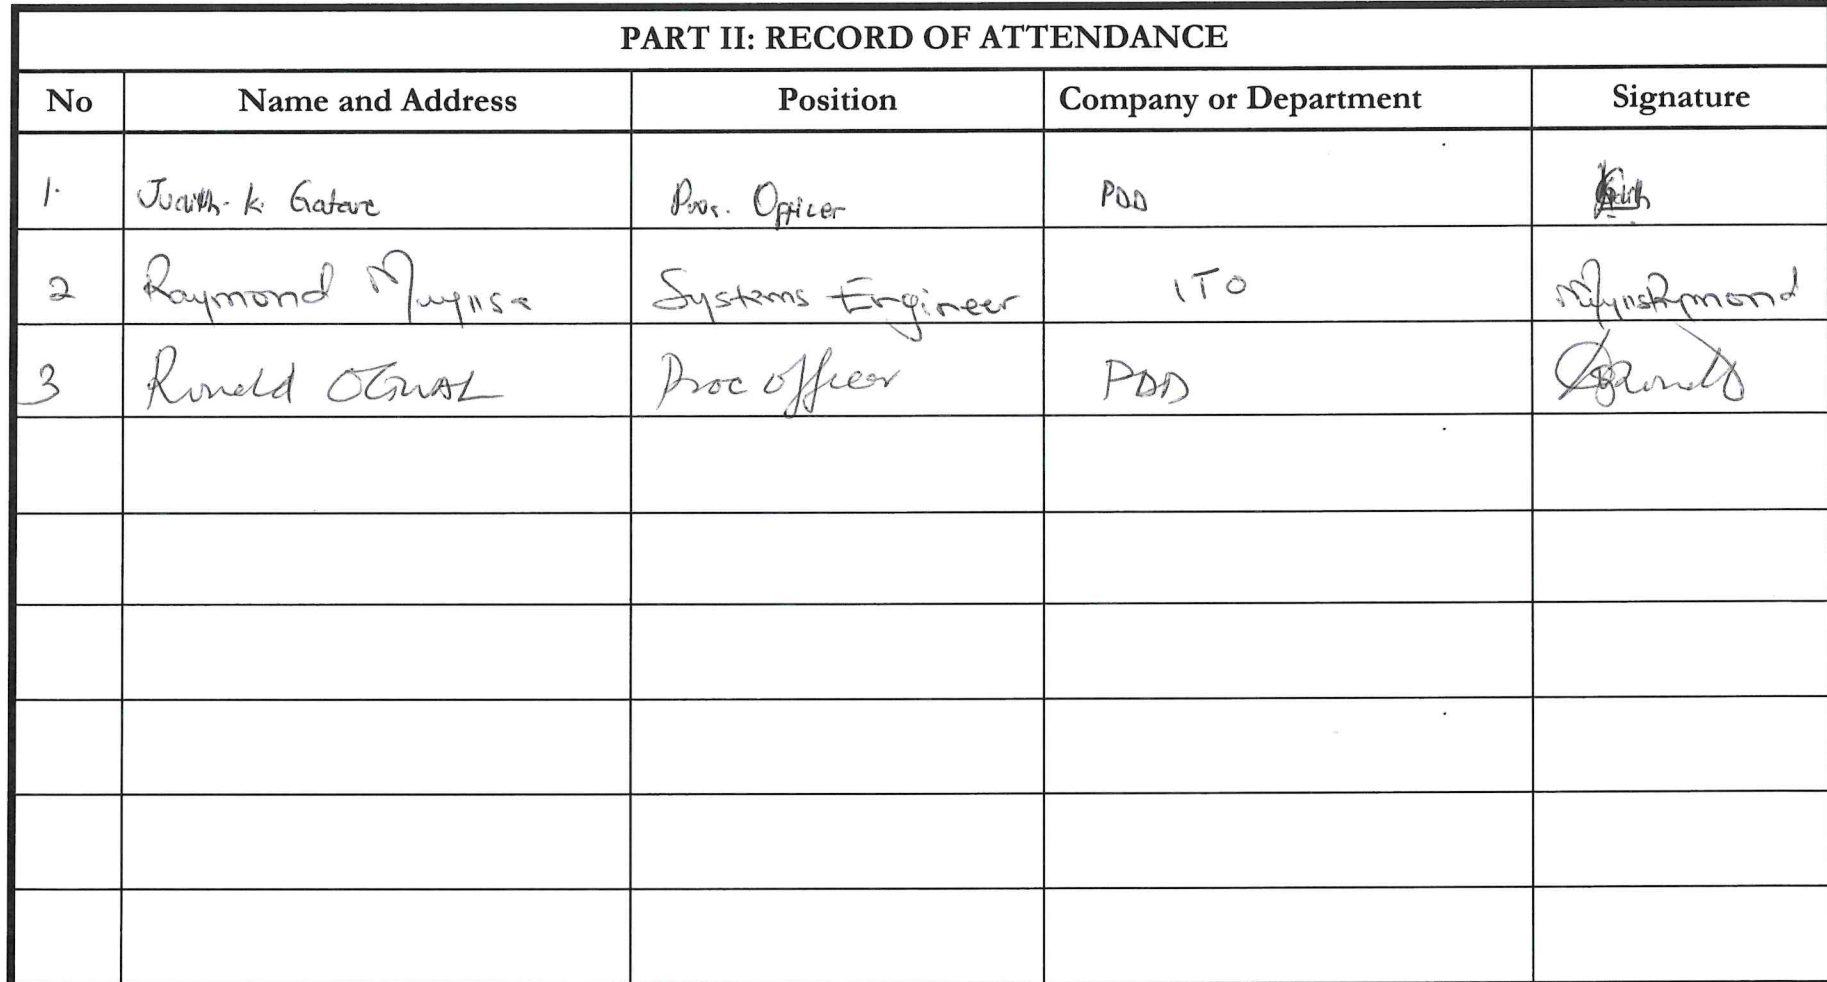 PART II: RECORD OF ATTENDANCE
No Name and Address Position Company or Department Signature
1. Judith. K. Officer PDD
2 Raymond Systems Engineer ITO
3 Ronald Proc Officer PDD